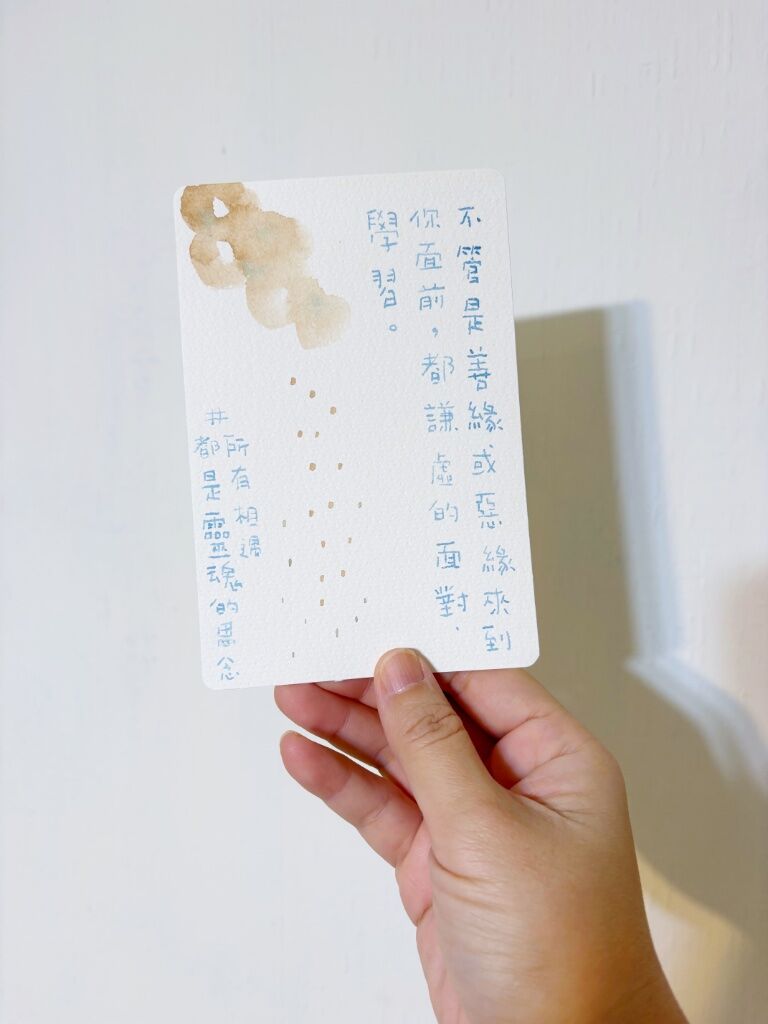 不管是善緣或惡緣來到
你面前，都謙虛的面對、
學習。
#所有相遇
都是靈魂的思念